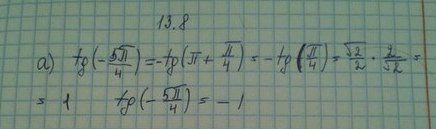 13.8
а) tg(-5π/4) = -tg(π + π/4) = -tg(π/4) = √2/2 · 2/√2 =
= 1 tg(-5π/4) = -1